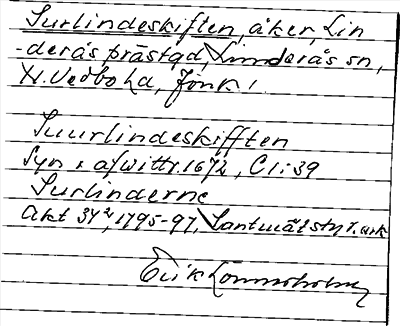 Surlindeskiften, åker, Lin
-derås prästgd, Linderås sn,
N. Vedbo hd, Jönk l
Suurlindeskifften
Syn & afwittr. 1672, C I: 39
Surlinderne
Akt 34², 1795-97, Lantmätstyr. ark
Erik